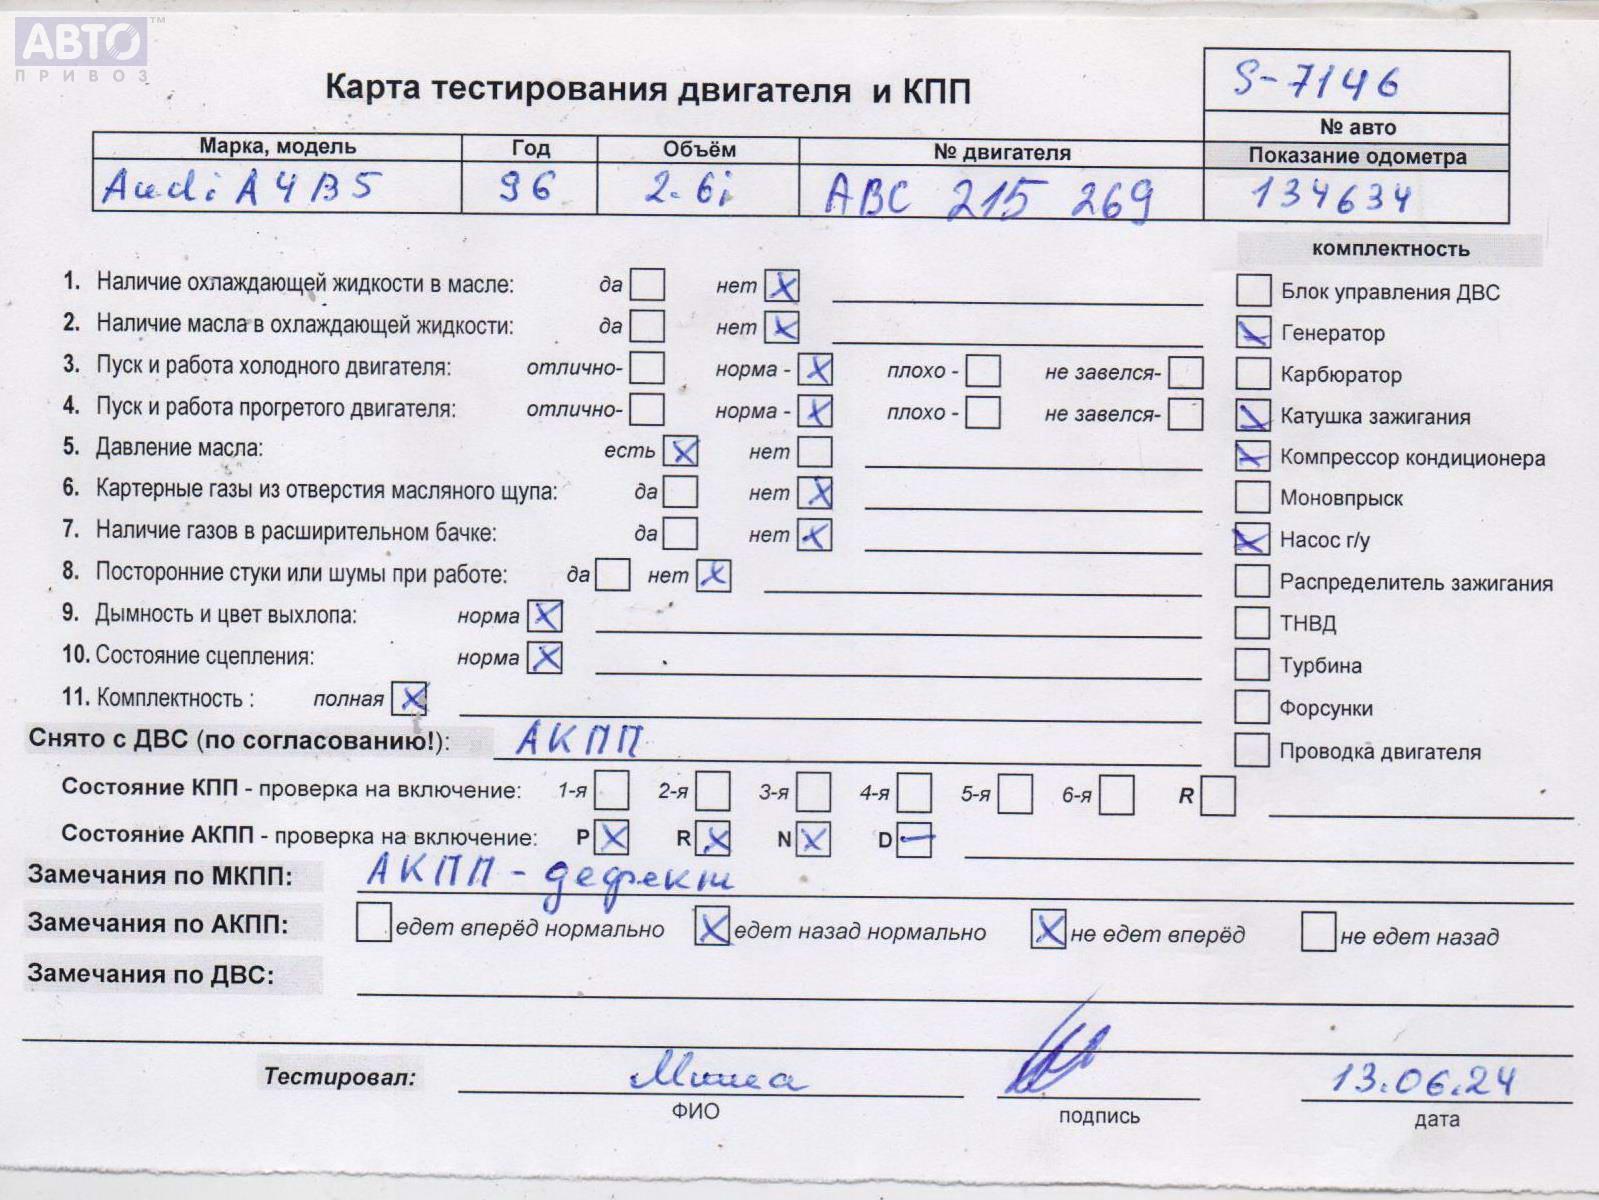 АВТО™
ПРИВОЗ
Карта тестирования двигателя и КПП
S-7146
№ авто
Марка, модель Год Объём № двигателя Показание одометра
Audi A4 B5 96 2.6i ABC 215 269 134634
комплектность
1. Наличие охлаждающей жидкости в масле: да нет X
Блок управления ДВС
2. Наличие масла в охлаждающей жидкости: да нет X
X Генератор
3. Пуск и работа холодного двигателя: отлично- норма - X плохо - не завелся-
Карбюратор
4. Пуск и работа прогретого двигателя: отлично- норма - X плохо - не завелся-
X Катушка зажигания
5. Давление масла: есть X нет
X Компрессор кондиционера
6. Картерные газы из отверстия масляного щупа: да нет X
Моновпрыск
7. Наличие газов в расширительном бачке: да нет X
X Насос г/у
8. Посторонние стуки или шумы при работе: да нет X
Распределитель зажигания
9. Дымность и цвет выхлопа: норма X
ТНВД
10. Состояние сцепления: норма X
Турбина
11. Комплектность : полная X
Форсунки
Снято с ДВС (по согласованию!): АКПП
Проводка двигателя
Состояние КПП - проверка на включение: 1-я 2-я 3-я 4-я 5-я 6-я R
Состояние АКПП - проверка на включение: P X R X N X D –
Замечания по МКПП: АКПП - дефект
Замечания по АКПП: едет вперёд нормально X едет назад нормально X не едет вперёд не едет назад
Замечания по ДВС:
Тестировал: Миша 13.06.24
ФИО подпись дата